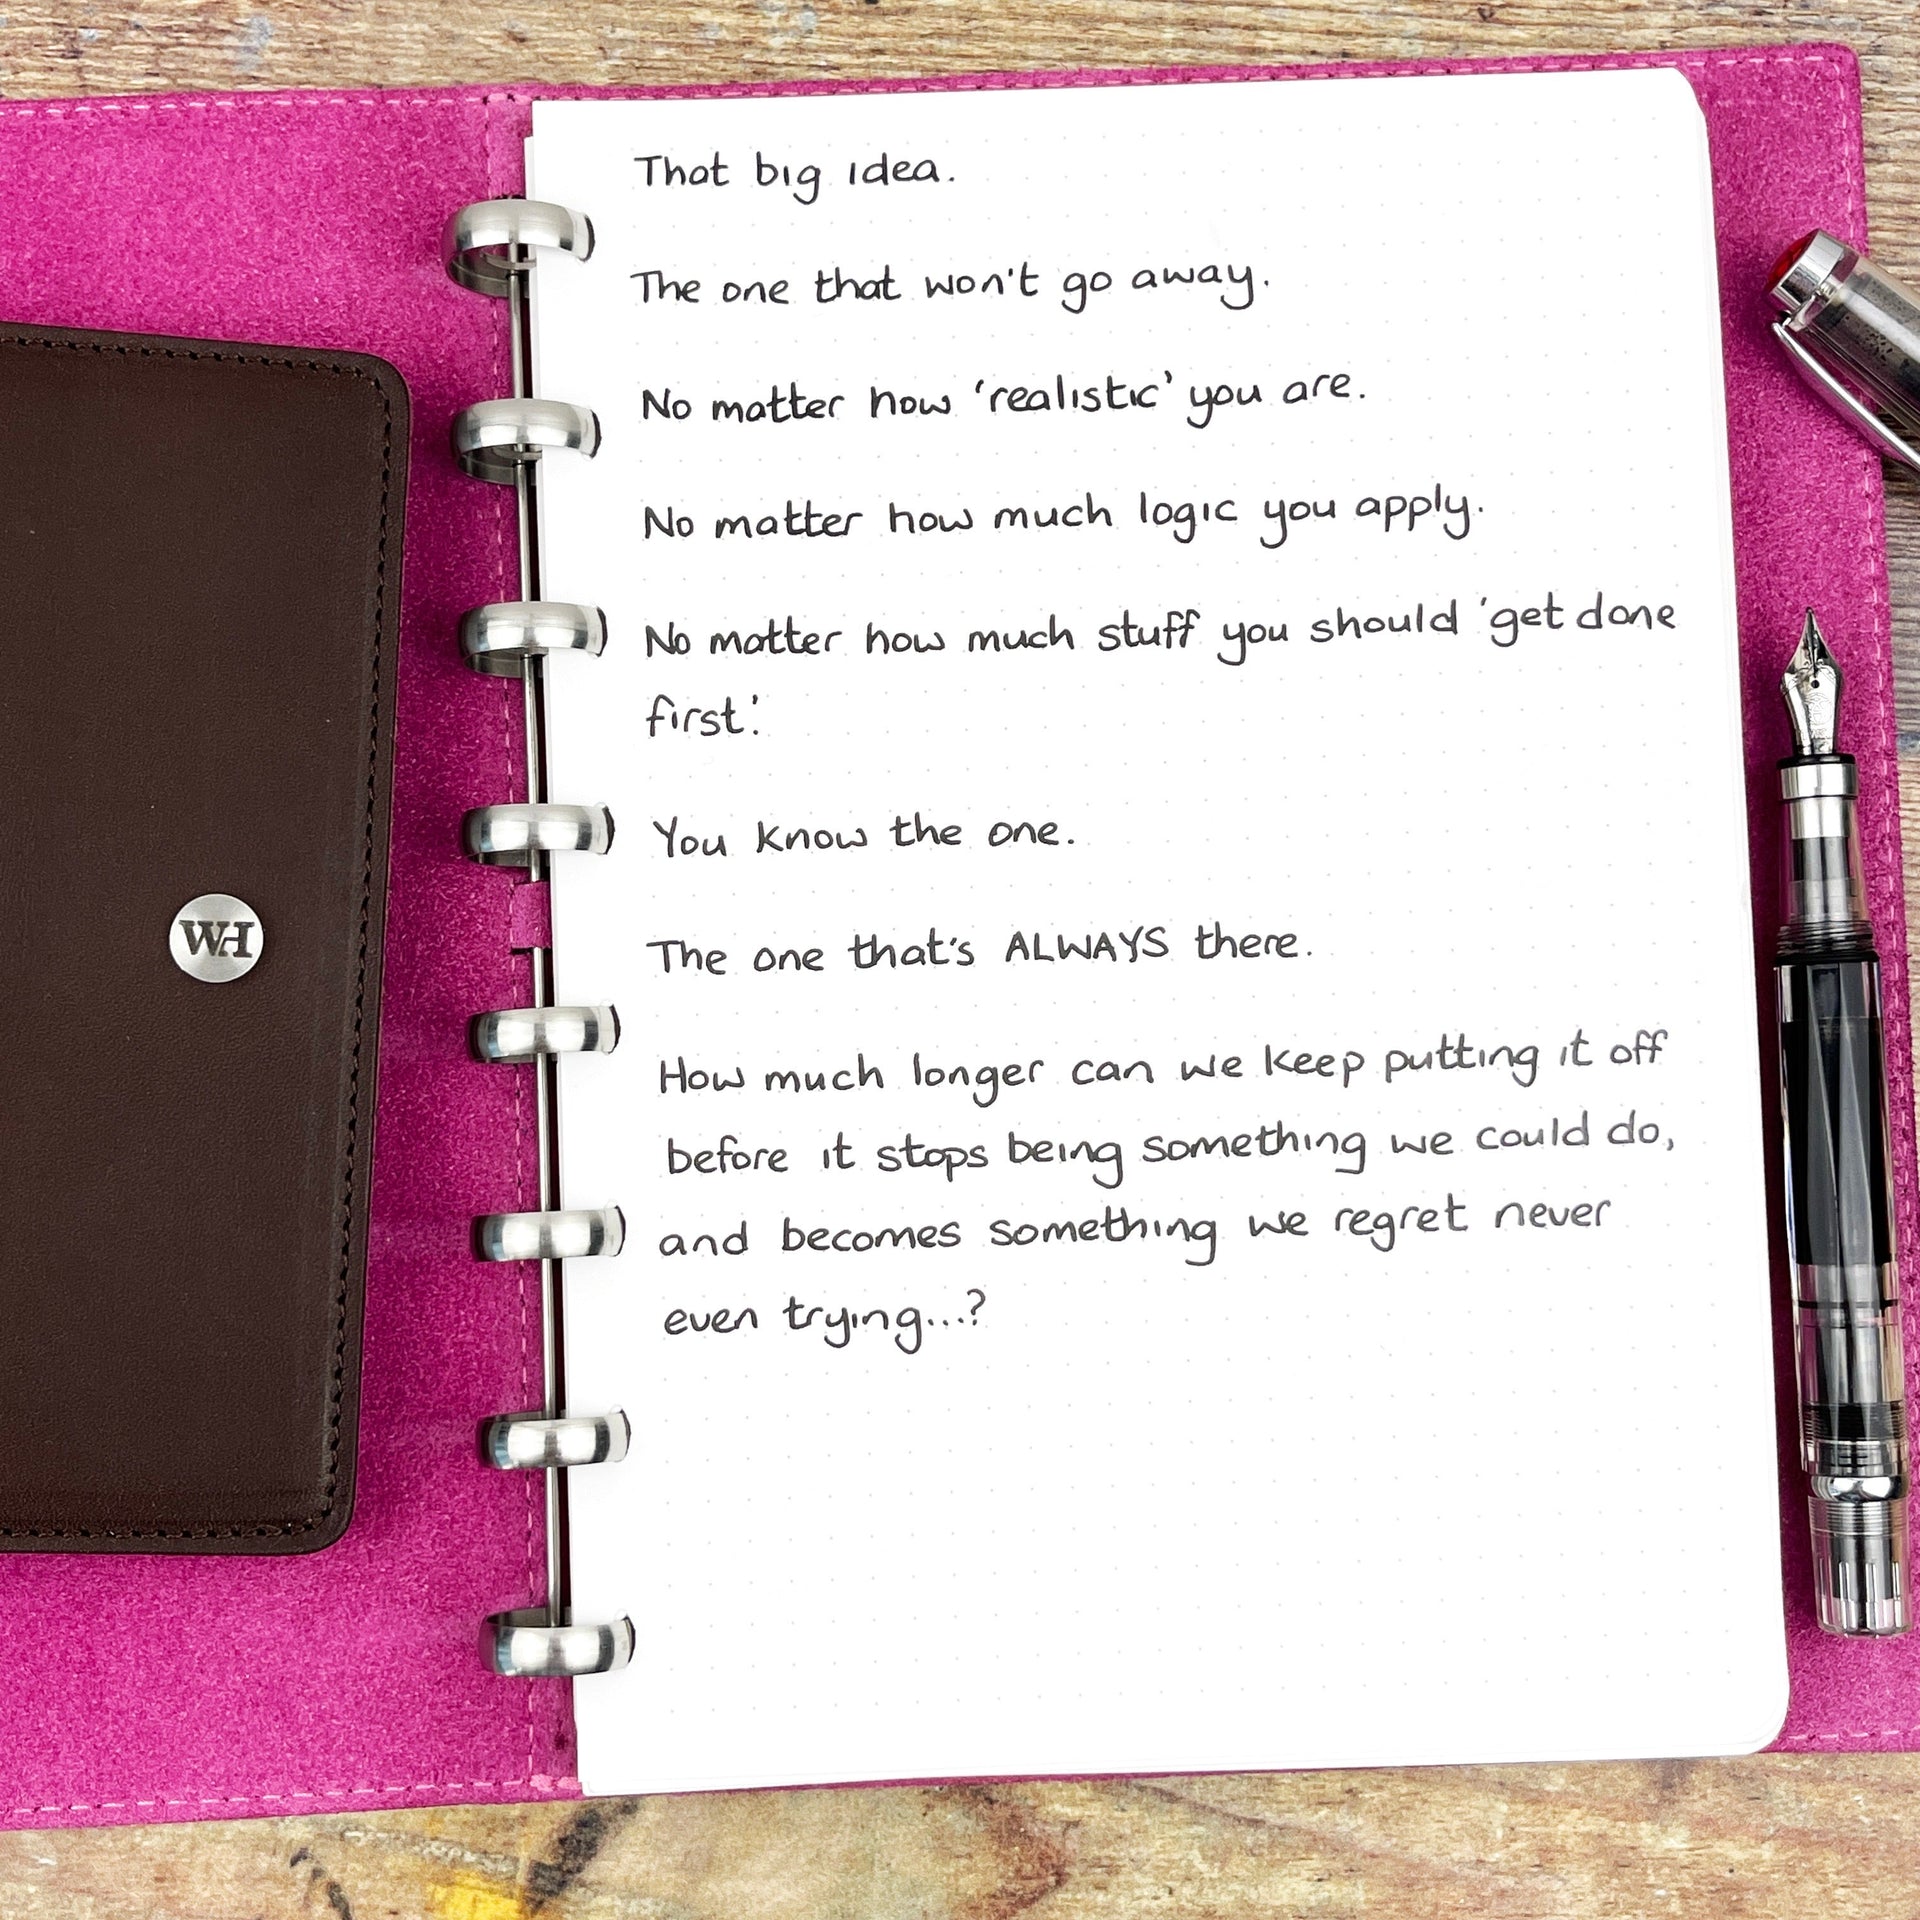 That big idea.
The one that won't go away.
No matter how 'realistic' you are.
No matter how much logic you apply.
No matter how much stuff you should 'get done
first.'
You know the one.
The one that's ALWAYS there.
How much longer can we keep putting it off
before it stops being something we could do,
and becomes something we regret never
even trying...?
WH